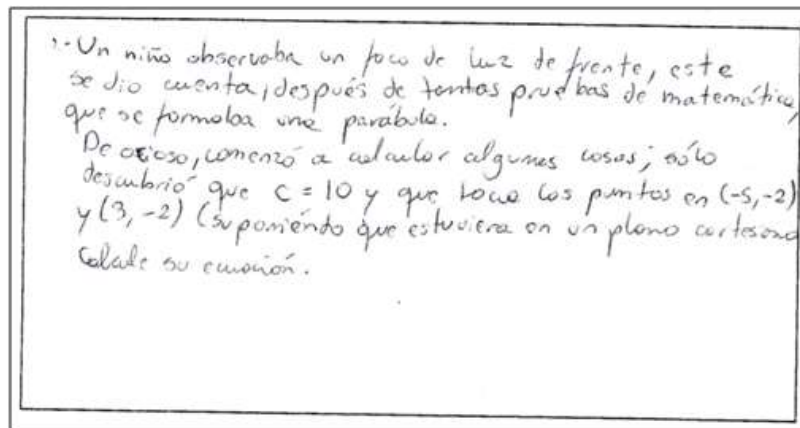 1.- Un niño observaba un foco de luz de frente, este
se dio cuenta, después de tantas pruebas de matemática,
que se formaba una parábola.
De ocioso, comenzó a calcular algunas cosas; sólo
descubrió que C = 10 y que toca los puntos en (-5,-2)
y (3, -2) (suponiendo que estuviera en un plano cartesiano
Calcule su ecuación.